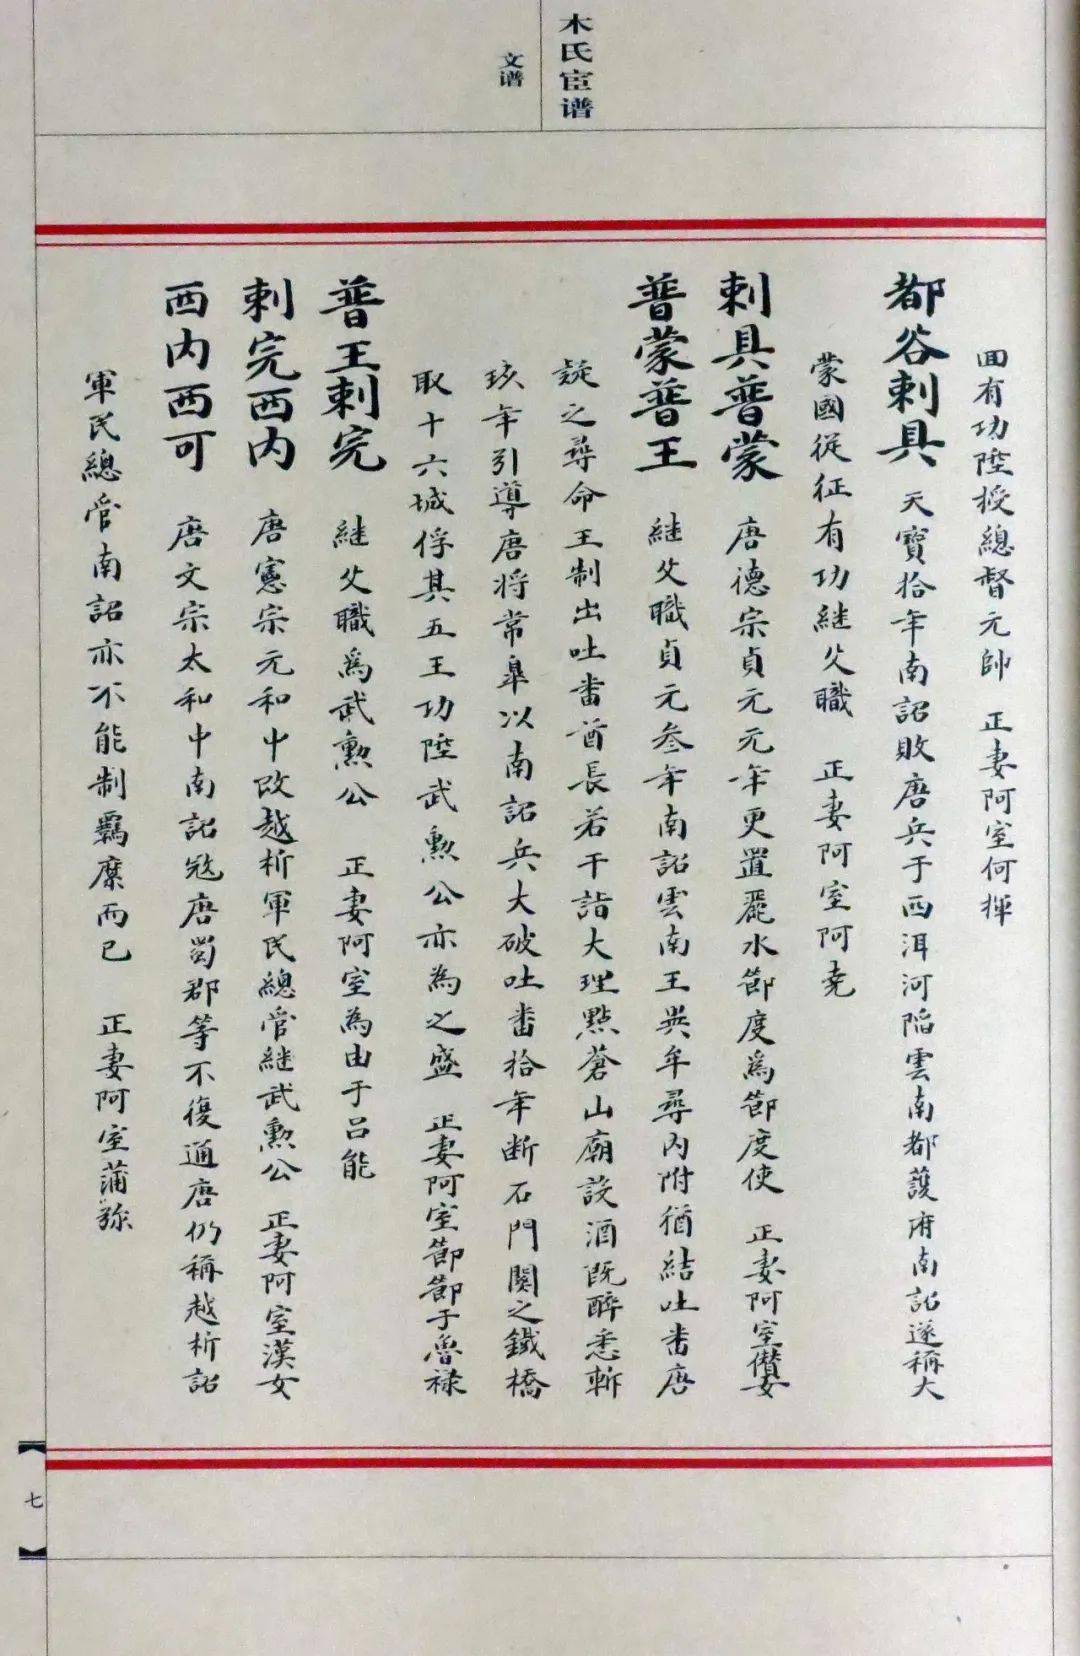 木氏宦谱
文谱
回有功陞授總督元帥 正妻阿室何揮
都谷剌具 天寶拾年南詔敗唐兵于西洱河陷雲南都護府南詔遂稱大
蒙國從征有功継父職 正妻阿室阿堯
剌具普蒙 唐德宗貞元元年更置麗水節度為節度使 正妻阿室
普蒙普王 継父職貞元叁年南詔雲南王異牟尋内附猶結吐蕃唐
疑之尋命王制出吐蕃酋長若干詣大理點蒼山廟設酒既醉悉斬
玖年引導唐將常皐以南詔兵大破吐蕃拾年断石門関之鐵橋
取十六城俘其五王功陞武勲公亦為之盛 正妻阿室節節于魯祿
普王剌完 継父職為武勲公 正妻阿室為由于吕能
剌完西内 唐憲宗元和中改越析軍民總管継武勲公 正妻阿室漢女
西内西可 唐文宗太和中南詔冦唐蜀郡等不復通唐仍稱越析詔
軍民總管南詔亦不能制羈縻而已 正妻阿室蒲弥
七